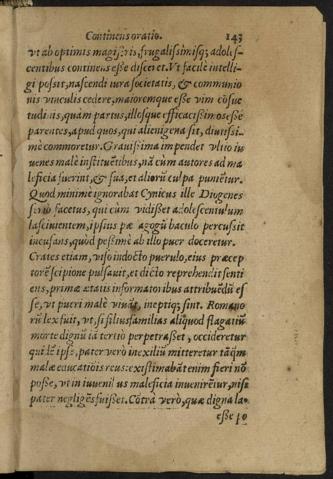 Continens oratio. 143
vt ab optimis magistris, frugalissimisq; adoles-
centibus continens esse disceret. Vt facilè intelli-
gi possit, nascendi iura societatis, & communio
nis vinculis cedere, maioremque esse vim cōsue
tudinis, quàm partus, illosque efficacissimos esse
parentes, apud quos, qui alienigena sit, diutissi-
mè commoretur. Grauissima impendet vltio iu
uenes malè instituētibus, nā cùm autores ad ma
leficia fuerint, & sua, et aliorū culpa punētur.
Quod minimè ignorabat Cynicus ille Diogenes
seriò facetus, qui cùm vidisset adolescentulum
lasciuientem, ipsius pædagogū baculo percussit
incusans, quòd pessimè ab illo puer doceretur.
Crates etiam, viso indocto puerulo, eius præcep
torē scipione pulsauit, et dicto reprehendit senti
ens, primæ ætatis informatoribus attribuēdū es
se, vt pueri malè viuāt, ineptiq; sint. Romano
rū lex fuit, vt, si filiusfamilias aliquod flagitiū
morte dignū iā tertiò perpetrasset, occideretur
quidē ipse, pater verò in exiliū mitteretur tāq̃m
malæ educatiōis reus: existimabāt enim fieri nō
posse, vt in iuuenibus maleficia inuenirētur, nisi
pater negligēs fuisset. Cōtrà verò, quæ digna la-
esse po